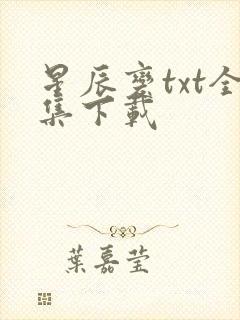 星辰变txt全
集下载
葉嘉莹